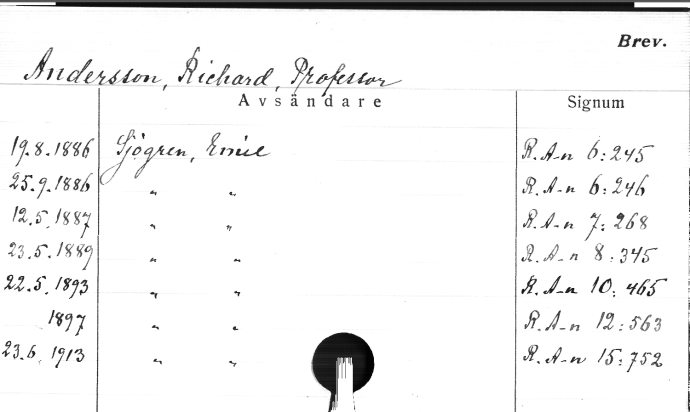 Brev.
Andersson, Richard, Professor
Avsändare Signum
19.8.1886 Sjögren, Emil R.A-n 6:245
25.9.1886 " " R.A-n 6:246
12.5.1887 " " R.A-n 7:268
23.5.1889 " " R.A-n 8:345
22.5.1893 " " R.A-n 10:465
1897 " " R.A-n 12:563
23.6.1913 " " R.A-n 15:752